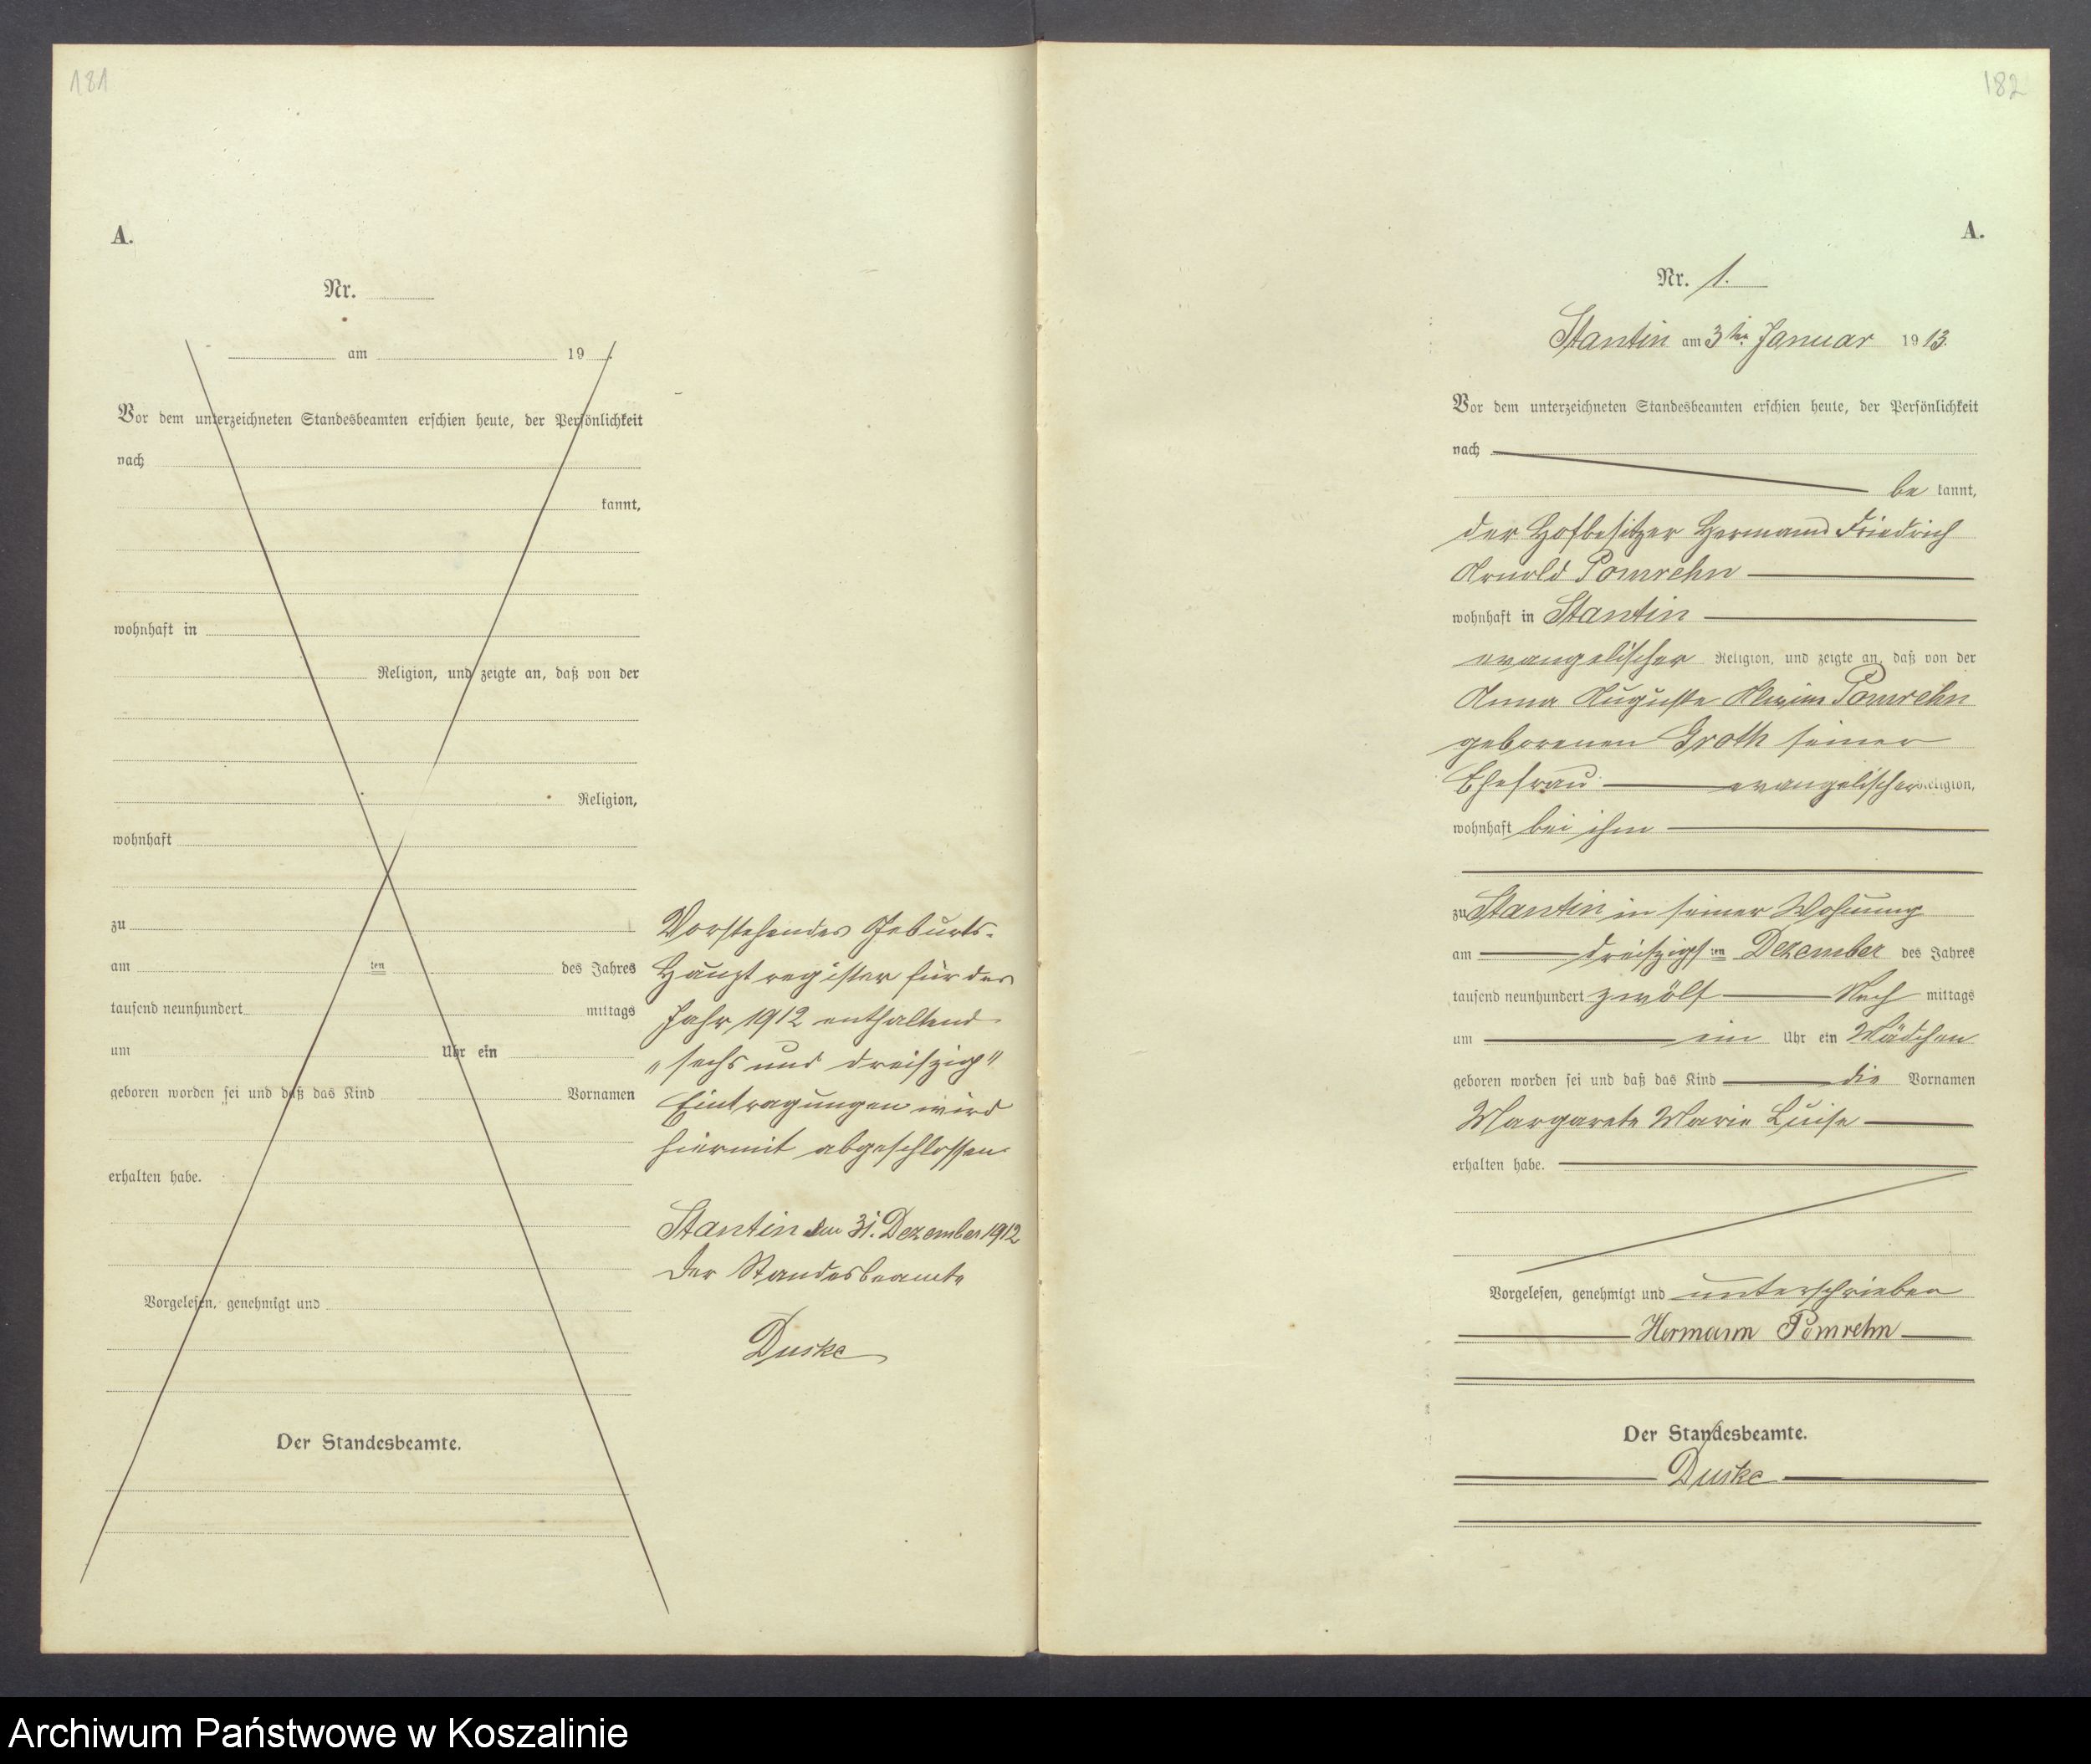 181
A.
Nr.
am 19
Vor dem unterzeichneten Standesbeamten erschien heute, der Persönlichkeit
nach
kannt,
wohnhaft in
Religion, und zeigte an, daß von der
Religion,
wohnhaft
zu
am ten des Jahres
tausend neunhundert mittags
um Uhr ein
geboren worden sei und daß das Kind Vornamen
erhalten habe.
Vorgelesen, genehmigt und
Der Standesbeamte.
Vorstehendes Geburts-
Hauptregister für das
Jahr 1912 enthaltend
"sechs und dreiszig"
Eintragungen wird
hiermit abgeschlossen.
Stantin den 31. Dezember 1912
Der Standesbeamte
Duske
182
A.
Nr. 1.
Stantin am 3ten Januar 1913.
Vor dem unterzeichneten Standesbeamten erschien heute, der Persönlichkeit
nach
be kannt,
der Hofbesitzer Hermann Friedrich
Arnold Pomrehn
wohnhaft in Stantin
evangelischer Religion, und zeigte an, daß von der
Anna Auguste Pomrehn
geborenen Groth seiner
Ehefrau evangelischer Religion,
wohnhaft bei ihm
zu Stantin in seiner Wohnung
am dreiszigsten Dezember des Jahres
tausend neunhundert zwölf Nach mittags
um ein Uhr ein Mädchen
geboren worden sei und daß das Kind die Vornamen
Margarete Marie Luise
erhalten habe.
Vorgelesen, genehmigt und unterschrieben
Hermann Pomrehn
Der Standesbeamte.
Duske
Archiwum Państwowe w Koszalinie